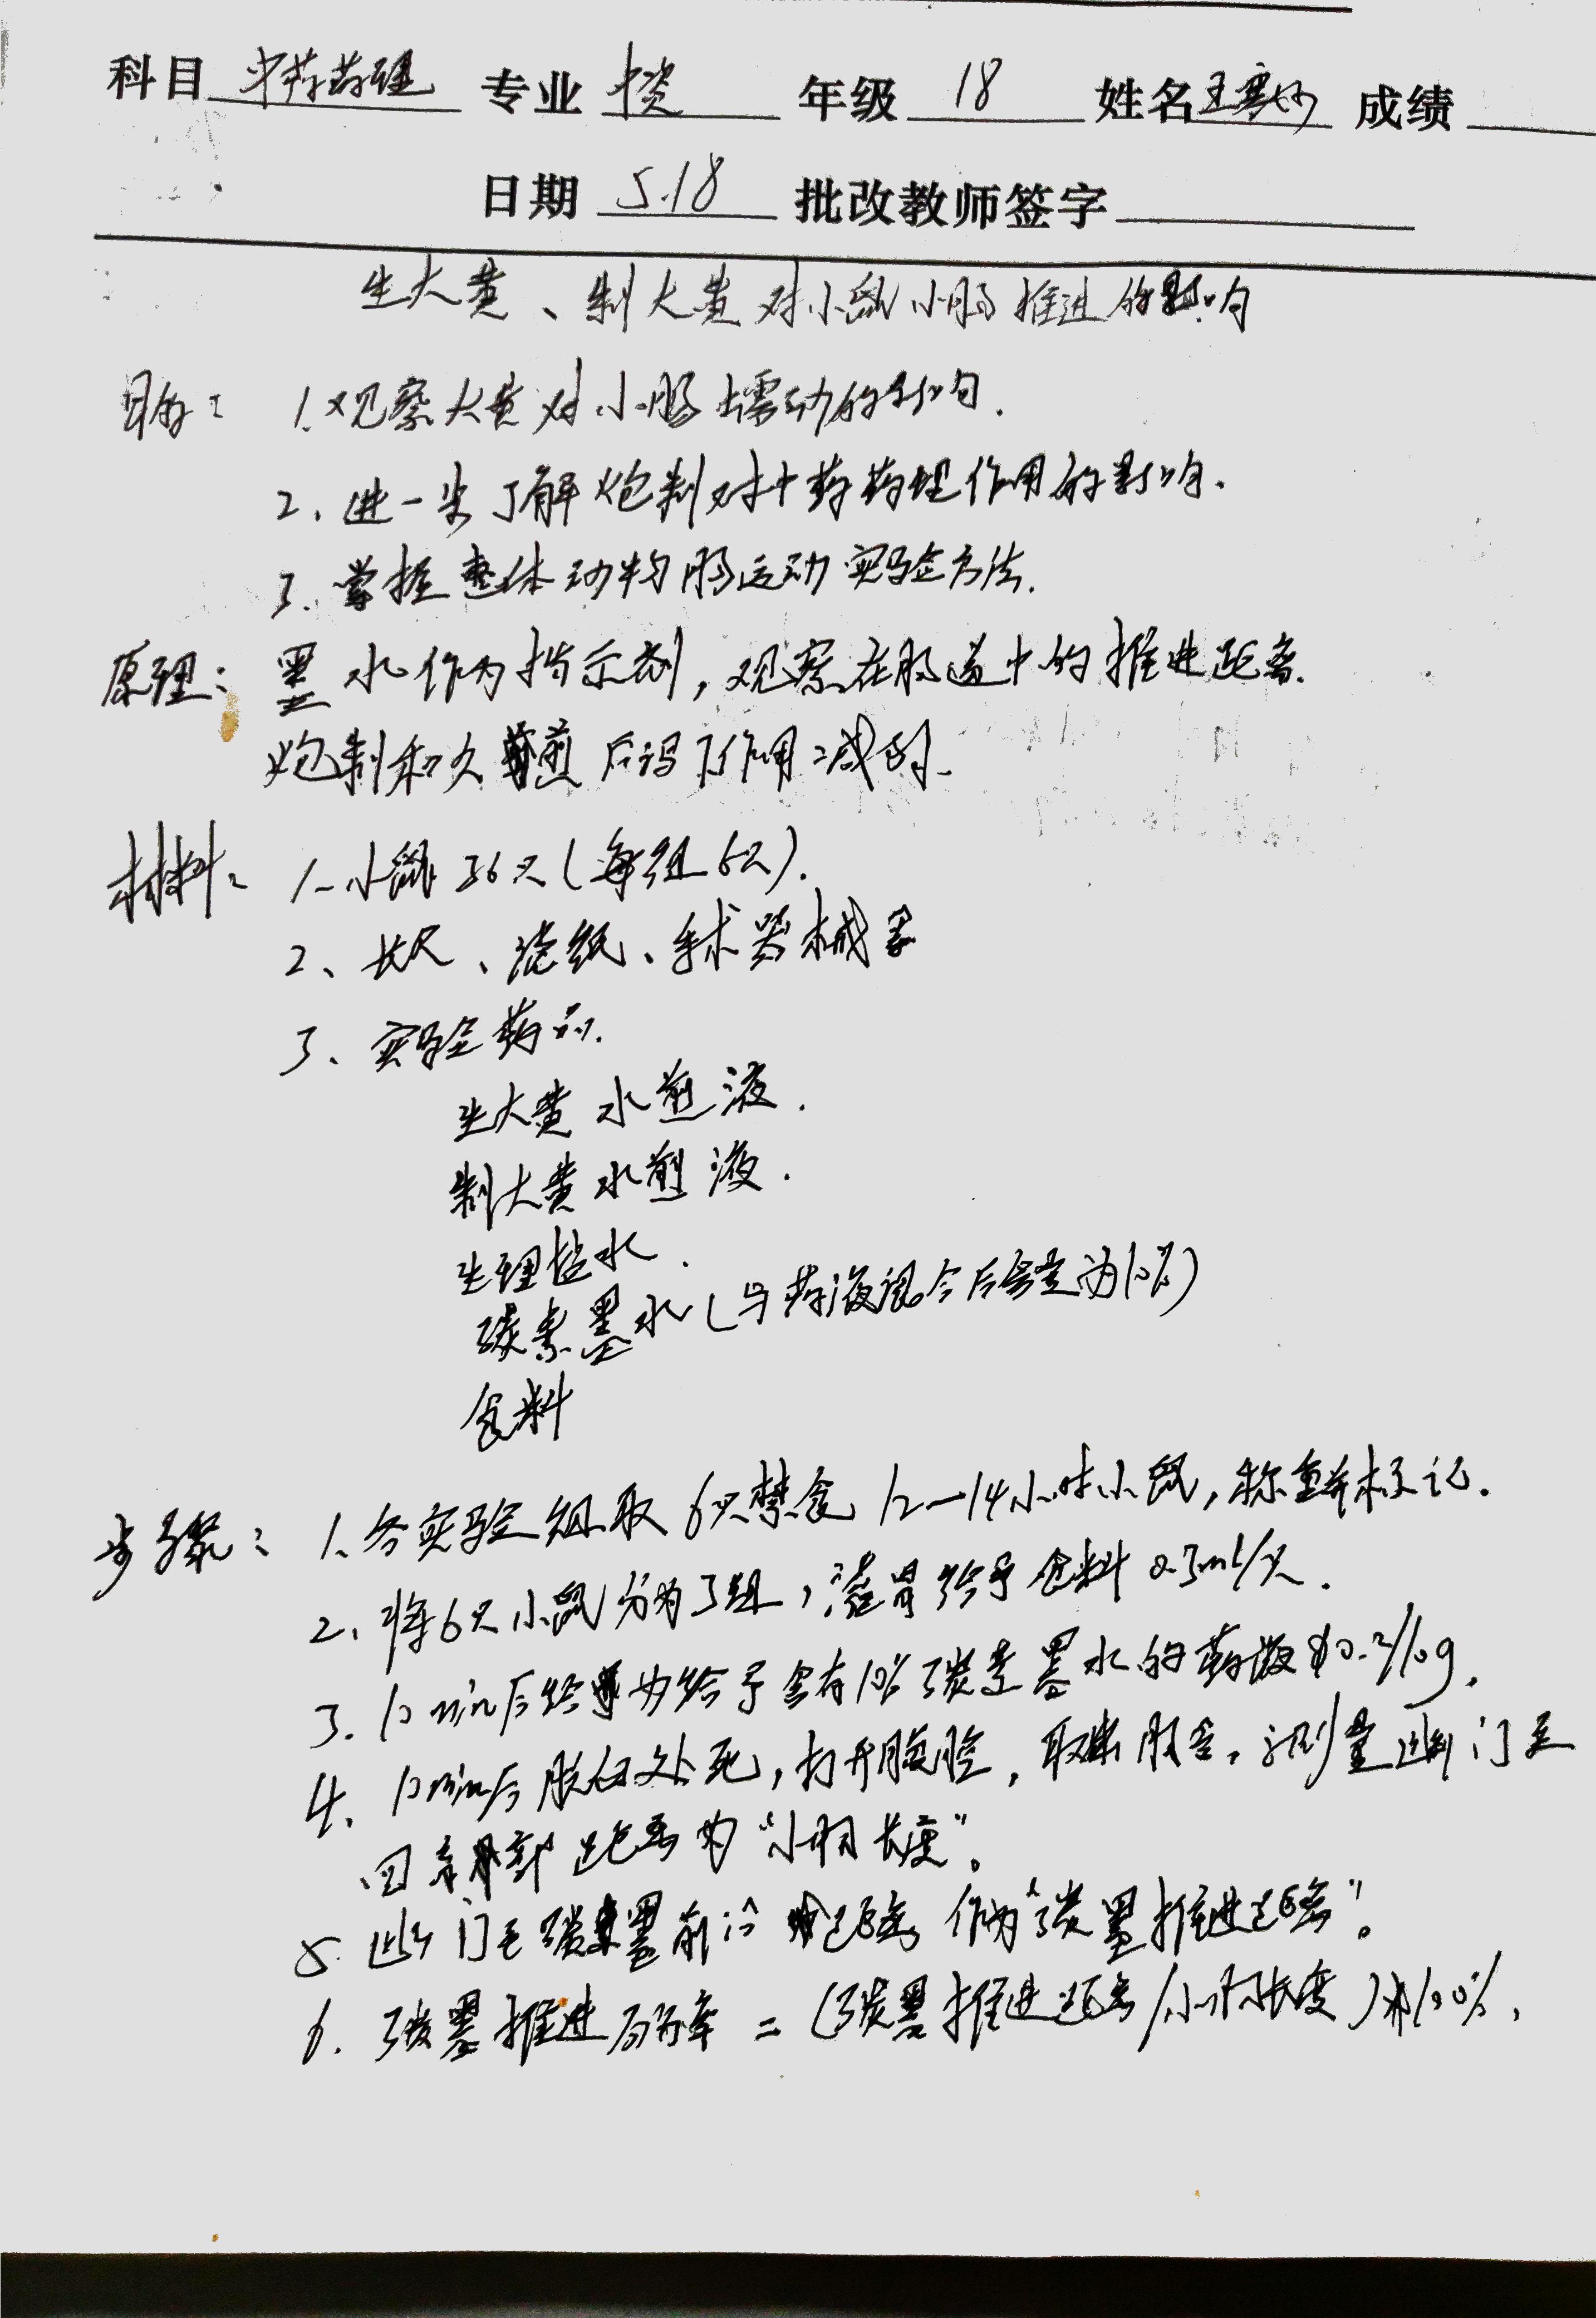 科目 中药药理 专业 中资 年级 18 姓名 王 成绩
日期 5.18 批改教师签字
生大黄、制大黄对小鼠小肠推进的影响
目的: 1.观察大黄对小肠蠕动的影响.
2、进一步了解炮制对中药药理作用的影响.
3.掌握整体动物肠运动实验方法.
原理: 墨水作为指示剂,观察在肠道中的推进距离.
炮制和久煎后泻下作用减弱.
材料: 1、小鼠36只(每组6只).
2、长尺、滤纸、手术器械等
3、实验药品.
生大黄水煎液.
制大黄水煎液.
生理盐水.
碳素墨水(与药液混合后含量为10%)
食料
步骤: 1、各实验组取6只禁食12-14小时小鼠,称重并标记.
2、将6只小鼠分为3组,灌胃给予食料0.3ml/只.
3. 10min后给予含有10%碳素墨水的药液0.2/10g.
4. 10min后脱臼处死,打开腹腔,取出肠管,测量幽门至
回盲部距离为“小肠长度”。
5. 幽门至碳墨前沿距离作为“碳墨推进距离”。
6. 碳墨推进百分率=(碳墨推进距离/小肠长度)×100%.